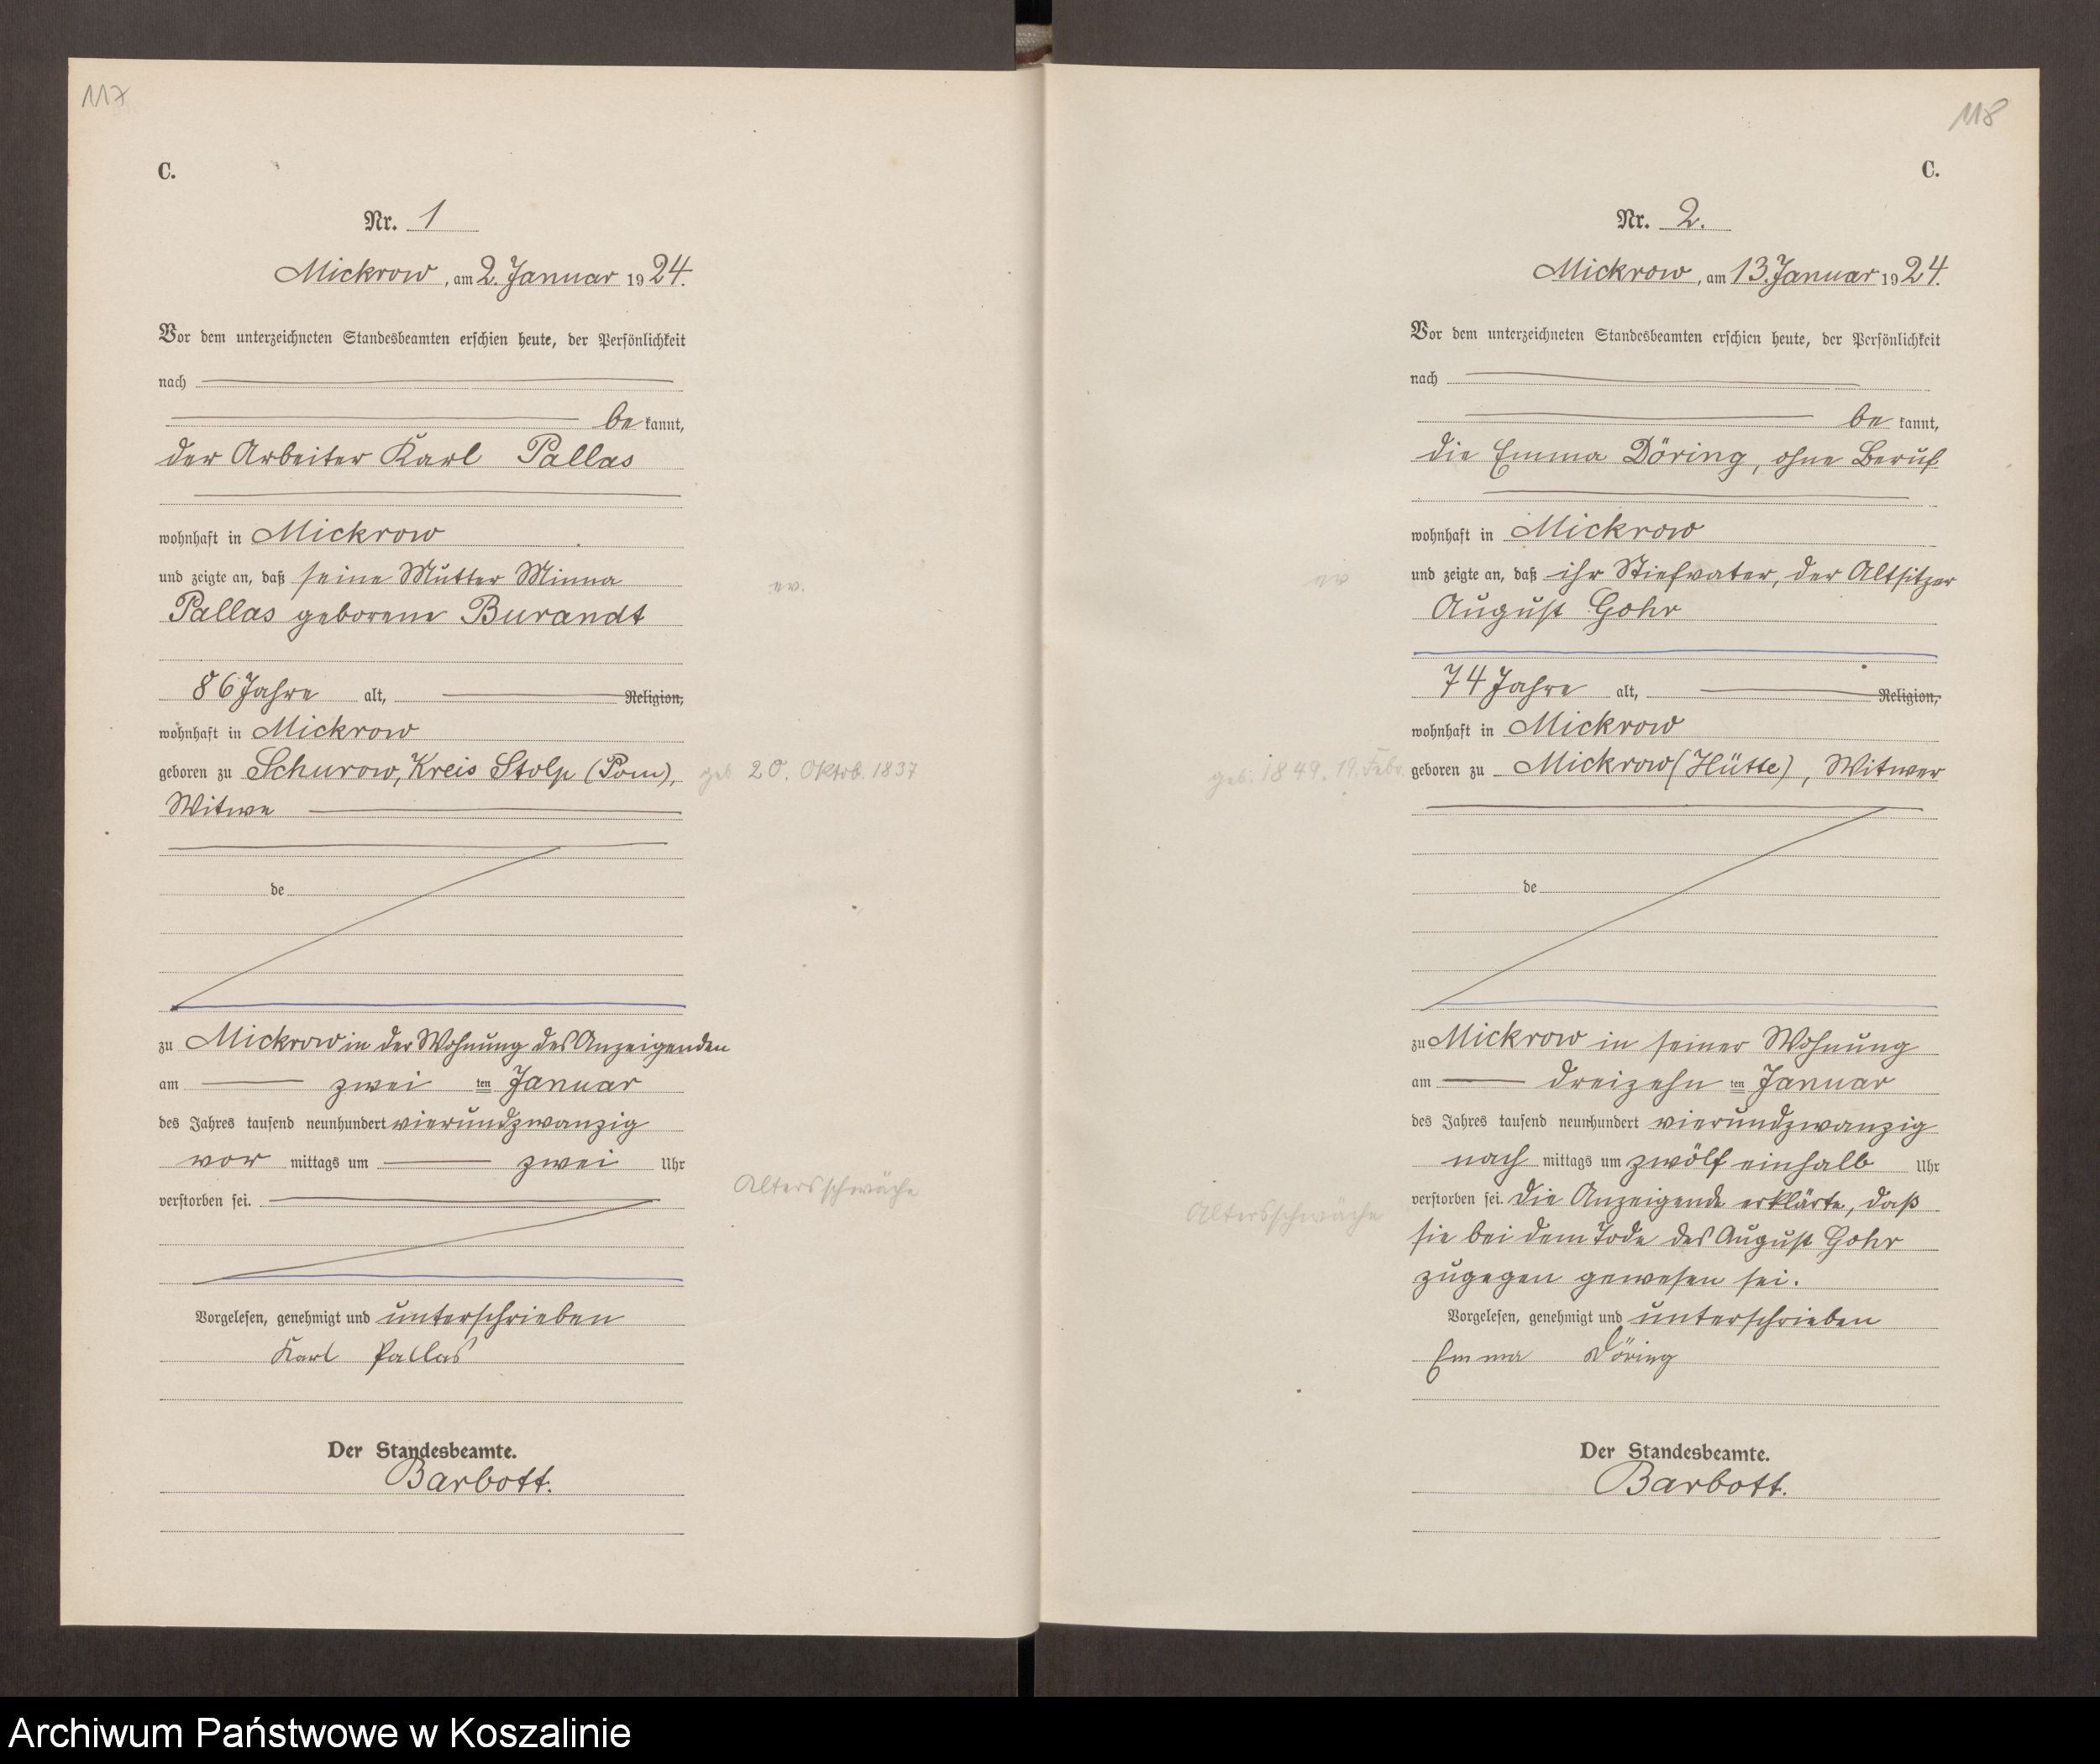 117
C.
Nr. 1
Mickrow, am 2. Januar 1924.
Vor dem unterzeichneten Standesbeamten erschien heute, der Persönlichkeit
nach
be kannt,
der Arbeiter Karl Pallas
wohnhaft in Mickrow
und zeigte an, daß seine Mutter Minna
ev.
Pallas geborene Burandt
86 Jahre alt, Religion,
wohnhaft in Mickrow
geboren zu Schurow, Kreis Stolp (Pom),
geb 20. Oktob. 1837
Witwe
de
zu Mickrow in der Wohnung des Anzeigenden
am zwei ten Januar
des Jahres tausend neunhundert vierundzwanzig
vor mittags um zwei Uhr
Altersschwäche
verstorben sei.
Vorgelesen, genehmigt und unterschrieben
Karl Pallas
Der Standesbeamte.
Barbott.
118
C.
Nr. 2.
Mickrow, am 13. Januar 1924.
Vor dem unterzeichneten Standesbeamten erschien heute, der Persönlichkeit
nach
be kannt,
die Emma Döring, ohne Beruf
wohnhaft in Mickrow
ev
und zeigte an, daß ihr Stiefvater, der Altsitzer
August Gohr
74 Jahre alt, Religion,
wohnhaft in Mickrow
geb. 1849. 19. Febr.
geboren zu Mickrow (Hütte), Witwer
de
zu Mickrow in seiner Wohnung
am dreizehn ten Januar
des Jahres tausend neunhundert vierundzwanzig
nach mittags um zwölf einhalb Uhr
Altersschwäche
verstorben sei. Die Anzeigende erklärte, daß
sie bei dem Tode des August Gohr
zugegen gewesen sei.
Vorgelesen, genehmigt und unterschrieben
Emma Döring
Der Standesbeamte.
Barbott.
Archiwum Państwowe w Koszalinie